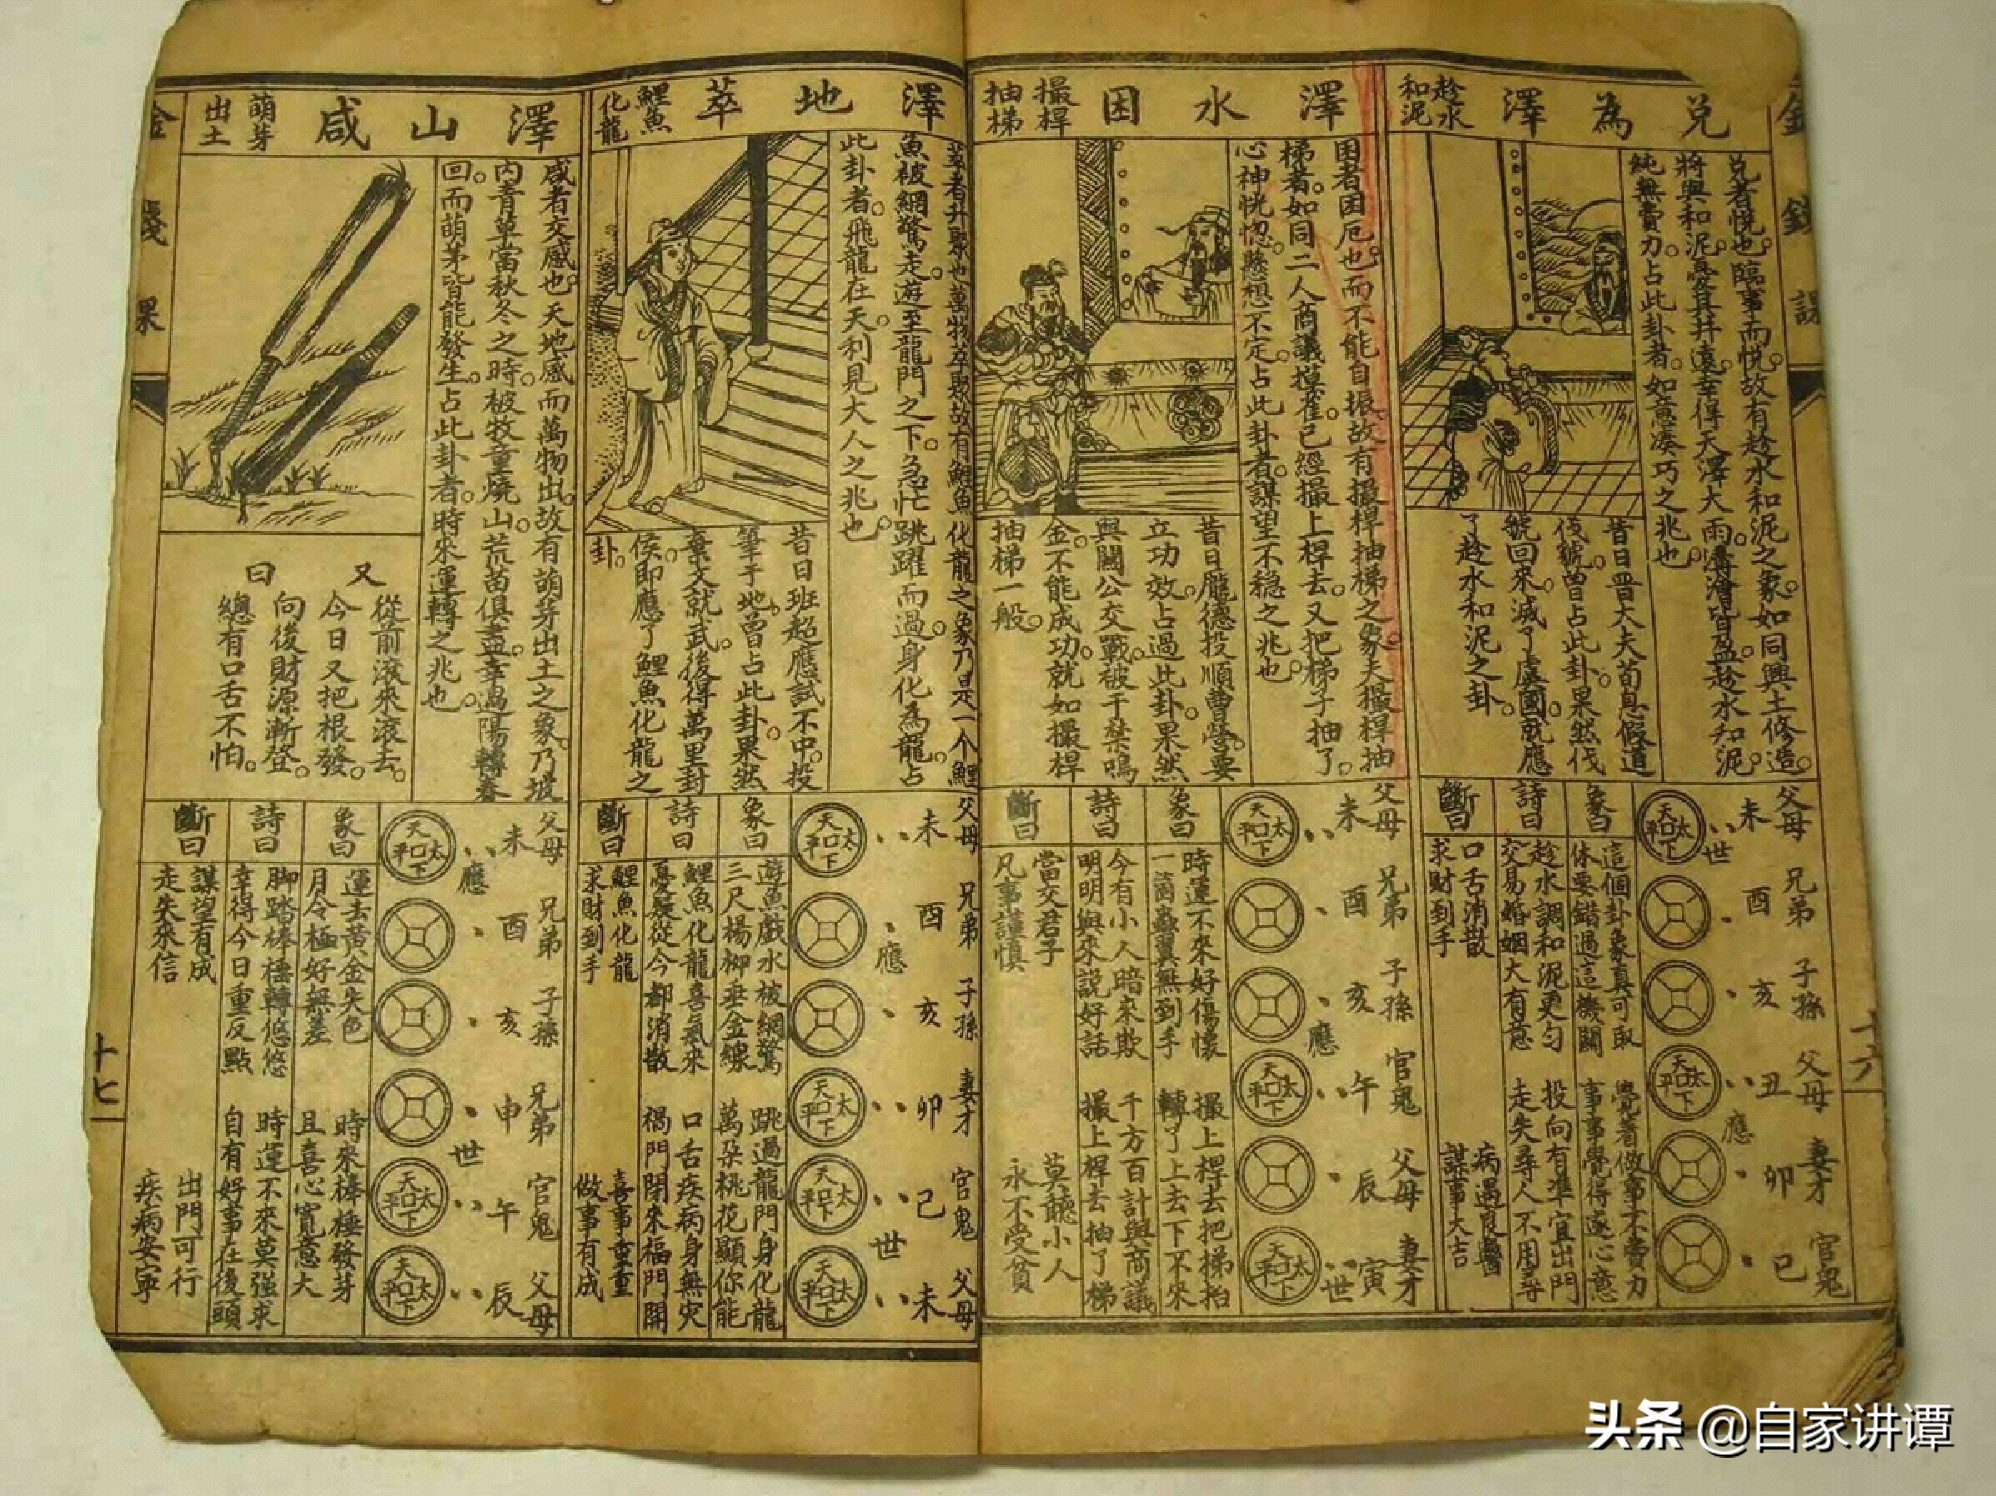 金錢課
十六
兌為澤
趁水
和泥
兌者悅也。臨事而悅。故有趁水和泥之象。如同興土修造。
將與和泥。憂其井遠。幸得天澤大雨。溝澮皆盈。趁水和泥。
純無費力。占此卦者。如意湊巧之兆也。
昔日晋大夫荀息假道
伐虢。曾占此卦。果然伐
虢回來。滅了虞國。就應
了趁水和泥之卦。
父母 兄弟 子孫 父母 妻才 官鬼
未 酉 亥 丑 卯 巳
世 應
太口天下平
太口天下平
象曰
這個卦象真可取 覺著做事不費力
休要錯過這機關 事事覺得遂心意
詩曰
趁水調和泥更勻 投向有準宜出門
交易婚姻大有意 走失尋人不用尋
斷曰
口舌消散 病遇良醫
求財到手 謀事大吉
澤水困
撮桿
抽梯
困者困厄也。而不能自振。故有撮桿抽梯之象。夫撮桿抽
梯者。如同二人商議摸雀。已經撮上桿去。又把梯子抽了。
心神恍惚。懸想不定。占此卦者。謀望不穩之兆也。
昔日龐德投順曹營。要
立功效。占過此卦。果然
與關公交戰。被于禁鳴
金。不能成功。就如撮桿
抽梯一般。
父母 兄弟 子孫 官鬼 父母 妻才
未 酉 亥 午 辰 寅
應 世
太口天下平
太口天下平
太口天下平
象曰
時運不來好傷懷 撮上桿去把梯抬
一箇蠢翼無到手 轉了上去下不來
詩曰
今有小人暗來欺 千方百計與商議
明明與來說好話 撮上桿去抽了梯
斷曰
當交君子 莫聽小人
凡事謹慎 永不受貧
澤地萃
鯉魚
化龍
萃者升聚也。萬物萃聚。故有鯉魚化龍之象。乃是一个鯉
魚被網驚走。遊至龍門之下。急忙跳躍而過。身化為龍。占
此卦者。飛龍在天。利見大人之兆也。
昔日班超應試不中。投
筆于地。曾占此卦。果然
棄文就武。後得萬里封
侯。即應了鯉魚化龍之
卦。
父母 兄弟 子孫 妻才 官鬼 父母
未 酉 亥 卯 巳 未
應 世
太口天下平
太口天下平
太口天下平
太口天下平
象曰
遊魚戲水被網驚 跳過龍門身化龍
三尺楊柳垂金線 萬朵桃花顯你能
詩曰
鯉魚化龍喜氣來 口舌疾病身無灾
憂疑從今都消散 禍門閉來福門開
斷曰
鯉魚化龍 喜事重重
求財到手 做事有成
澤山咸
萌芽
出土
咸者交感也。天地感而萬物出。故有萌芽出土之象。乃坡
内青草當秋冬之時。被牧童燒山。荒苗俱盡。幸過陽轉春
回。而萌芽皆能發生。占此卦者。時來運轉之兆也。
又曰
從前滚來滚去。
今日又把根發。
向後財源漸登。
總有口舌不怕。
父母 兄弟 子孫 兄弟 官鬼 父母
未 酉 亥 申 午 辰
應 世
太口天下平
太口天下平
太口天下平
象曰
運去黃金失色 時來棒棰發芽
月令極好無差 且喜心寬意大
詩曰
脚踏棒棰轉悠悠 時運不來莫強求
幸得今日重反點 自有好事在後頭
斷曰
謀望有成 出門可行
走失來信 疾病安寧
金錢課
十七
头条 @自家讲谭